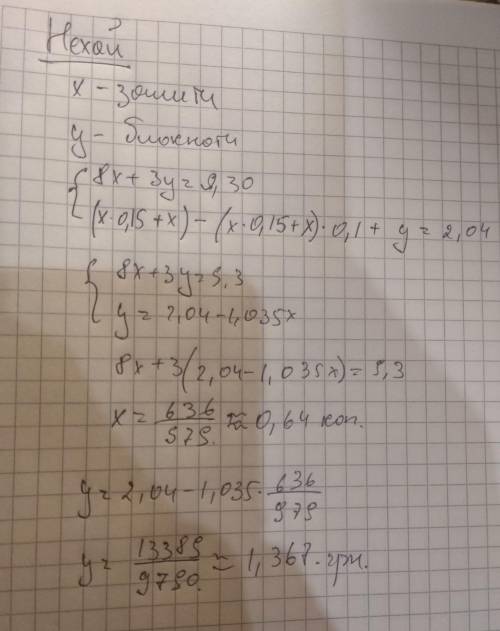 Нехай
x - зошити
y - блокноти
{ 8x + 3y = 9,30
(x·0,15+x) - (x·0,15+x)·0,1 + y = 2,04
{ 8x+3y=9,3
y = 2,04-1,035x
8x+3(2,04-1,035x)=9,3
x = 636/979 ≈ 0,64 коп.
y = 2,04-1,035·636/979
y = 13389/9790 ≈ 1,367 грн.